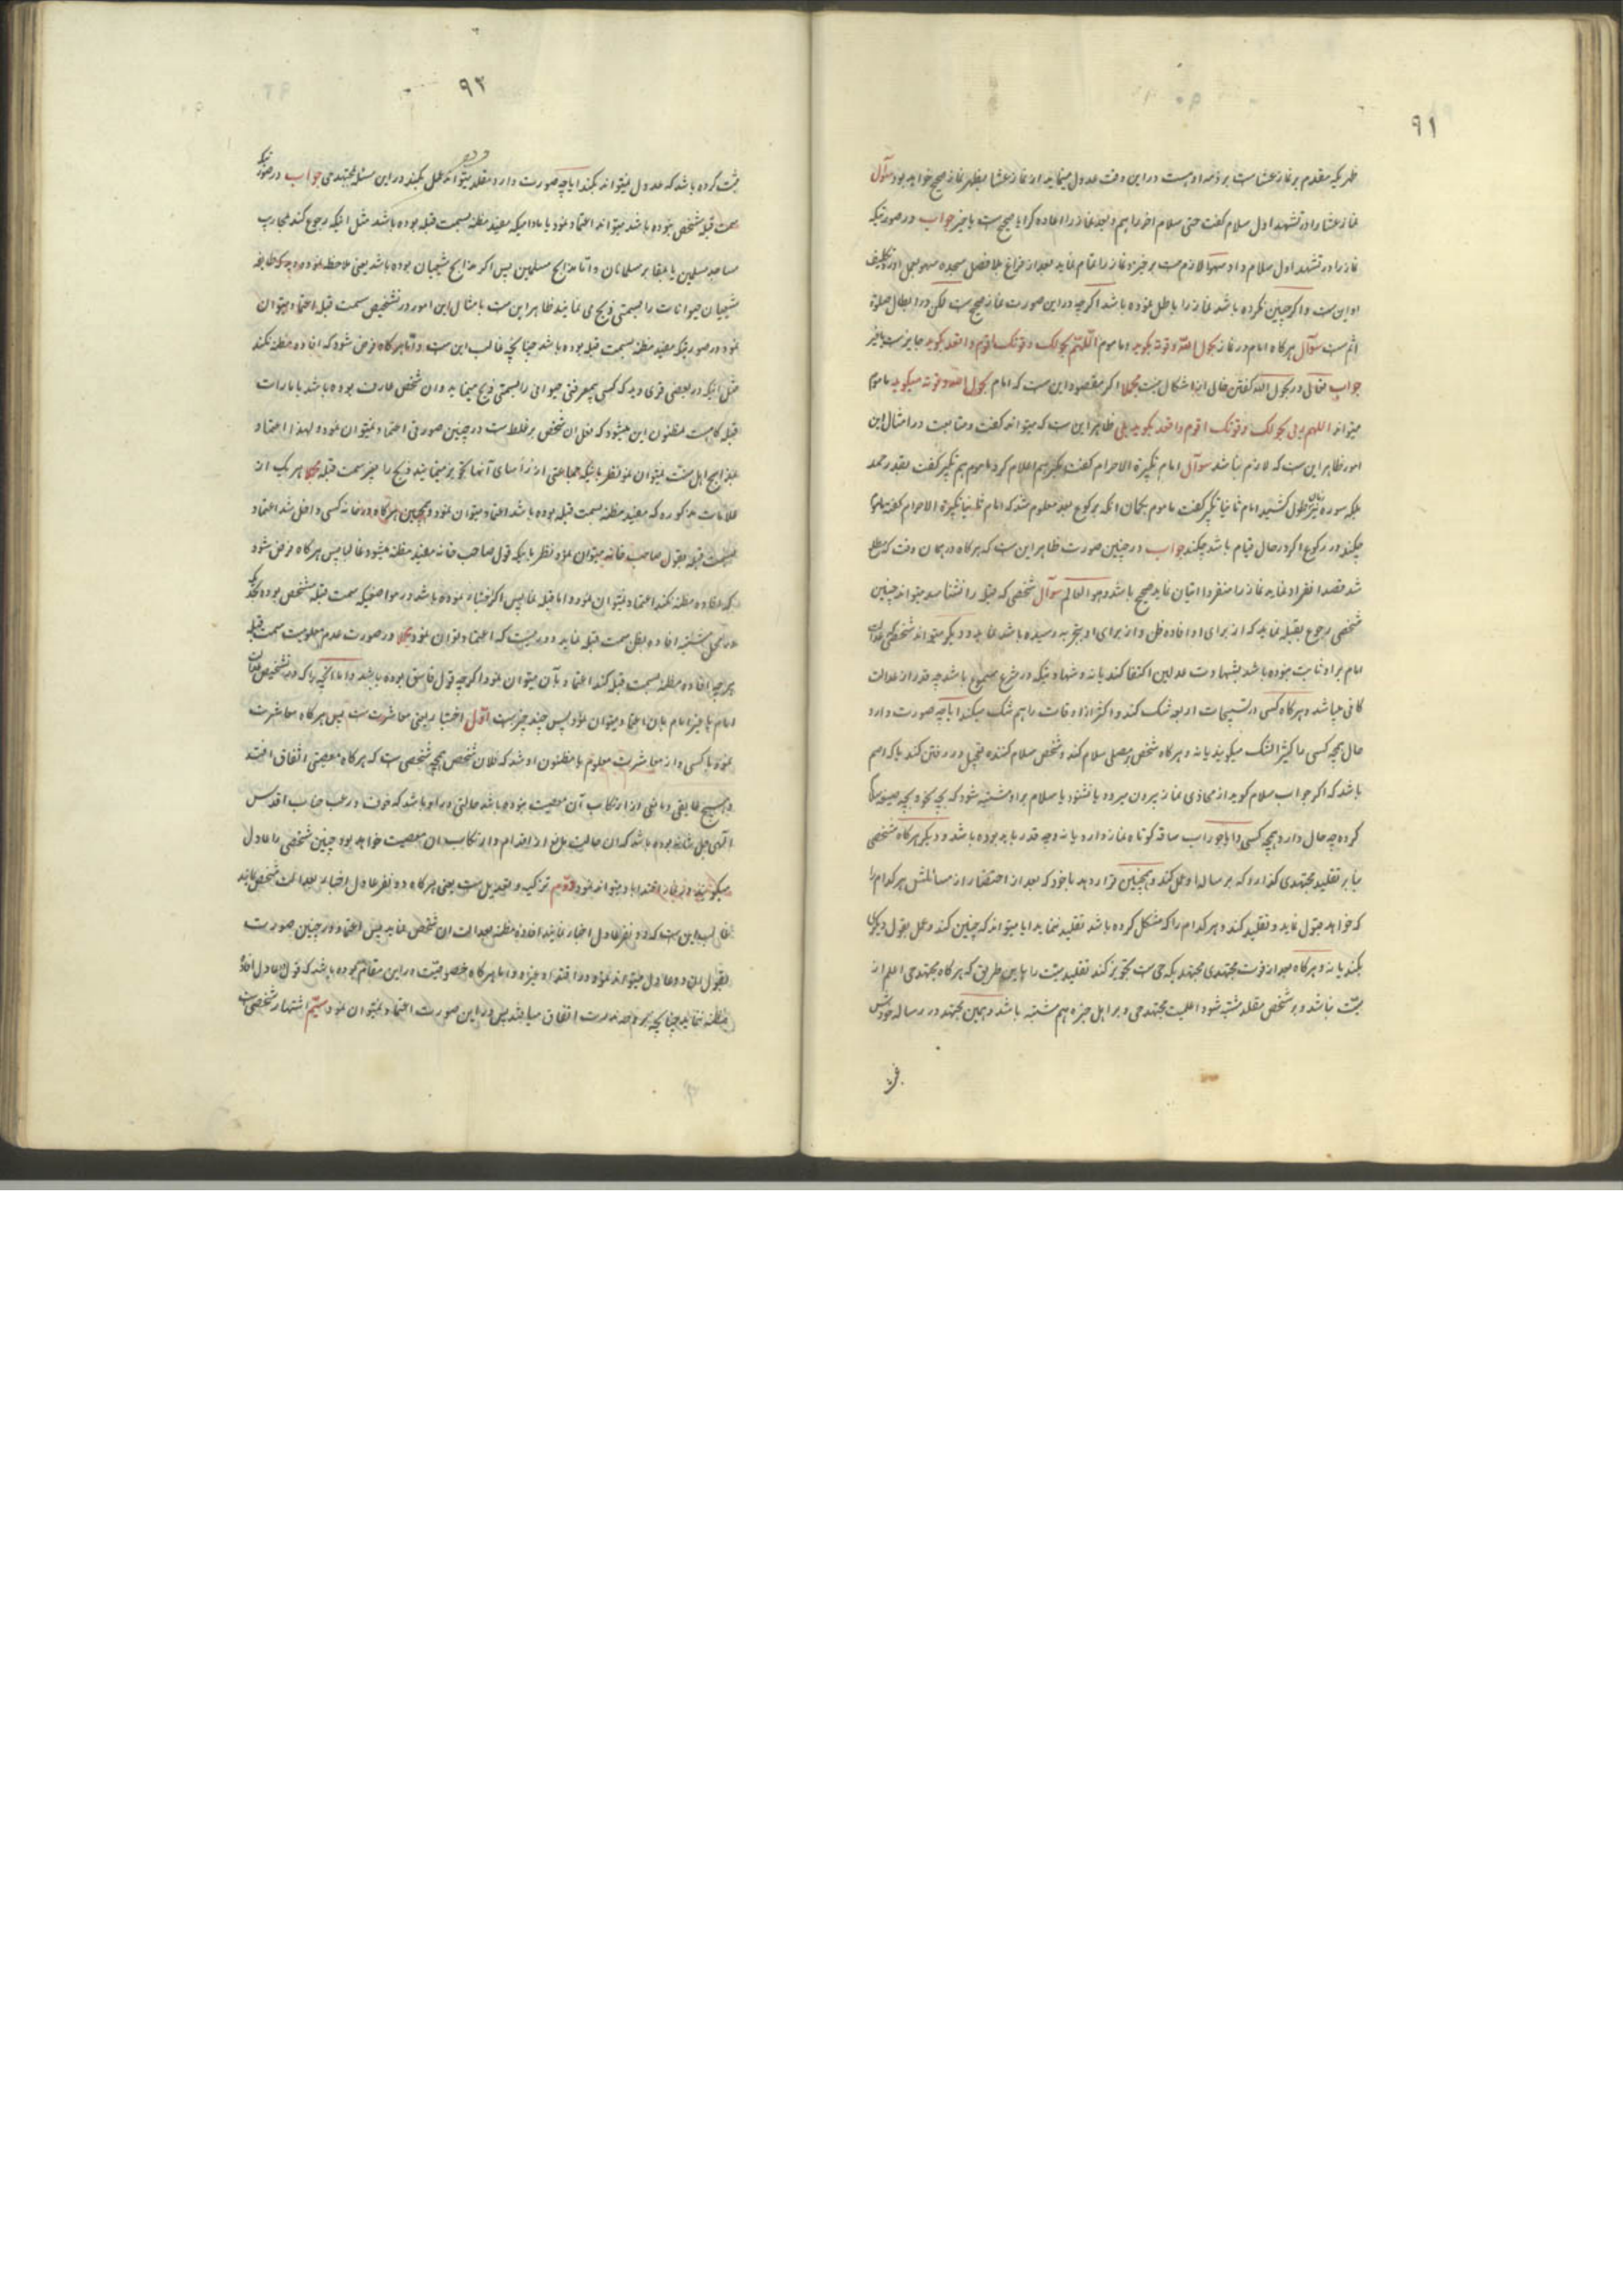 ۹۱
ظهر که مقدم بر نماز عشا ست بر ذمه او هست در این وقت عدول مینماید از نماز عشا بظهر نماز صحیح خواهد بود سؤال
نماز عشا را در تشهد اول سلام گفت حتی سلام اخر را هم و بعد نماز را اعاده کرد ایا صحیح ست یا خیر جواب در صورتیکه
نماز را در تشهد اول سلام داد سهوا لازم ست بر خیزد و نماز را تمام نماید بعد از فراغ بلا فصل سجده سهو بعمل اورد تکلیف
او این ست و اگر چنین نکرده باشد نماز را باطل نموده باشد اگرچه در این صورت نماز صحیح ست لکن در ابطال صلوة
اثم ست سؤال هرگاه امام در نماز بحول الله و قوته بگوید و ماموم اللهم بحولک و قوتک اقوم و اقعد بگوید جایز ست یا خیر
جواب در بحول الله گفتن خالی از اشکال نیست مجملا اگر مقصود این ست که امام بحول الله و قوته میگوید ماموم
میتواند اللهم ربی بحولک و قوتک اقوم و اقعد بگوید بلی ظاهر این ست که میتواند گفت و متابعت در امثال این
امور ظاهر این ست که لازم نباشد سوآل امام تکبیرة الاحرام گفت مکبر هم اعلام کرد ماموم هم تکبیر گفت بقدر حمد
بلکه سوره نیز طول کشید امام ثانیا تکبیر گفت ماموم بگمان انکه برکوع بعد معلوم شد که امام ثانیا تکبیرة الاحرام گفته ماموم
چکند در رکوع اگر در حال قیام باشد چکند جواب در چنین صورت ظاهر این ست که هرگاه در همان وقت که مطلع
شد قصد انفراد نماید نماز را منفردا اتیان نماید صحیح باشد و هو العالم سوآل شخصی که قبله را نشناسد میتواند چنین
شخصی رجوع بقبله نماید که از برای او افاده ظن و از برای او بتجربه رسیده باشد نماید و دیگر میتواند شخصی که عدالت
امام بر او ثابت نبوده باشد بشهادت عدلین اکتفا کند یا نه و شهادتیکه در شرع مسموع باشد چه قدر از عدالت
کافی میباشد و هرگاه کسی در تسبیحات اربعه شک کند و اکثر از اوقات را هم شک میکند ایا چه صورت دارد
حال همچه کسی را کثیر الشک میگویند یا نه و هرگاه شخص بر مصلی سلام کند و شخص سلام کننده تعجیل در رفتن کند یا که اصم
باشد که اگر جواب سلام گوید از محاذی نماز بیرون میرود یا نشنود یا سلام بر او مشتبه شود که بچه نحو و بچه صیغه سلام
کرده چه حال دارد همچه کسی و ایا جوراب ساقه کوتاه نماز دارد یا نه و چه قدر باید بوده باشد و دیگر هرگاه شخصی
بنا بر تقلید مجتهدی گذارد که بر ساله او عمل کند و همچنین قرار دهد با خود که بعد از استفتار از مسائلش هر کدام را
که خواهد قبول نماید و تقلید کند و هر کدام را که مشکل کرده باشد تقلید ننماید ایا میتواند که چنین کند و عمل بقول دیگری
بکند یا نه و هرگاه بعد از فوت مجتهدی مجتهدیکه حی ست تجویز کند تقلید میت را باین طریق که هرگاه مجتهد حی اعلم از
میت نباشد و بر شخص مقلد مشتبه شود اعلمیت مجتهد حی و بر اهل خبره هم مشتبه باشد و همین مجتهد در رساله خودش
۹۲
ثبت کرده باشد که عدول نمیتواند بکند ایا چه صورت دارد مقلد میتواند عمل بکند در این مسئله بمجتهد حی جواب در صورتیکه
سمت قبله مشخص نبوده باشد میتواند اعتماد نمود بامارامیکه مفید مظنه بسمت قبله بوده باشد مثل اینکه رجوع کند بمحارب
مساجد مسلمین یا بمقابر مسلمانان و اما مذابح مسلمین پس اگر مذابح شیعیان بوده باشد یعنی ملاحظه نموده که طایفه
شیعیان حیوانات را بسمتی ذبح می نمایند ظاهر این ست بامثال این امور در تشخیص سمت قبله اعتماد میتوان
نمود در صورتیکه مفید مظنه بسمت قبله بوده باشد چنانچه غالب این ست و اما هرگاه فرض شود که افاده مظنه نکند
مثل اینکه در بعضی قری دیده که کسی بمعرفتی حیوانی را بسمتی ذبح مینماید و ان شخص عارف بوده باشد بامارات
قبله کاهست مظنون این میشود که فعل ان شخص بر غلط ست در چنین صورتی اعتماد نمیتوان نمود و لهذا اعتماد
بمذابح اهل سنت نمیتوان نمود نظر باینکه جماعتی از رؤسای آنها تجویز مینمایند ذبح را بغیر سمت قبله مجملا هر یک از
علامات مذکوره که مفید مظنه بسمت قبله بوده باشد اعتماد میتوان نمود و همچنین هرگاه در خانه کسی داخل شد اعتماد
بسمت قبله بقول صاحب خانه میتوان نمود نظر باینکه قول صاحب خانه مفید مظنه میشود غالبا پس هرگاه فرض شود
که افاده مظنه نکند اعتماد نمیتوان نمود و اما قبله نما پس اگر نموده باشد در مواضعیکه سمت قبله مشخص بوده
در محل مشتبه افاده بظن سمت قبله نماید دور نیست که اعتماد توان نمود مجملا در صورت عدم معلومیت سمت قبله
هر چه افاده مظنه بسمت قبله کند اعتماد بآن میتوان نمود اگرچه قول فاسق بوده باشد و اما آنچه را که در تشخیص عدالت
امام یا غیر امام بان اعتماد میتوان نمود پس چند چیز ست اول اختبار یعنی معاشرت ست پس هرگاه معاشرت
نمود با کسی و از معاشرت معلوم یا مظنون او شد که فلان شخص همچه شخصی ست که هرگاه معصیتی اتفاق افتد
و هیچ عایقی و مانعی از ارتکاب آن معصیت نبوده باشد حالتی در او باشد که خوف و رعب جناب اقدس
الهی جل شانه بوده باشد که ان حالت مانع از اقدام و ارتکاب ان معصیت خواهد بود چنین شخصی را عادل
میگویند و در نماز اقتدا باو میتواند نمود دویم تزکیه و تعدیل ست یعنی هرگاه دو نفر عادل اخبار بعدالت شخص نمایند
غالب این ست که دو نفر عادل اخبار نمایند افاده مظنه بعدالت ان شخص نماید پس اعتماد در چنین صورت
بقول ان دو عادل میتوانند نمود در اقتدا و غیره و اما هرگاه خصوصیت در این مقام بوده باشد که قول عادل افاده
مظنه نماید چنانچه بر وجه ندرت اتفاق میافتد پس در این صورت اعتماد نمیتوان نمود سیم اشتهار شخصی ست